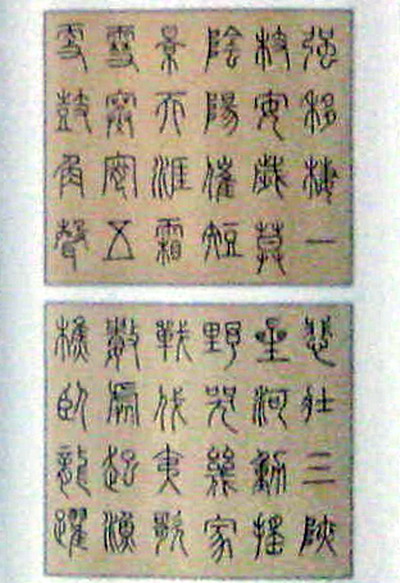 强移棲一
枝安歲莫
陰陽催短
景天涯霜
雪寒宵五
更鼓角聲
悲壯三陜
星河動搖
野哭幾家
戰伐夷歌
數處起漁
樵臥龍躍